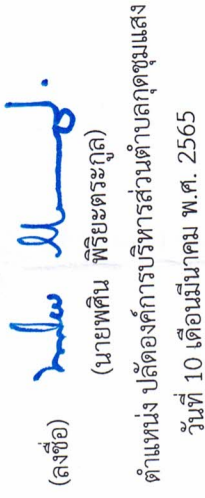 (ลงชื่อ)
(นายพศิน พิริยะตระกูล)
ตำแหน่ง ปลัดองค์การบริหารส่วนตำบลกุดชุมแสง
วันที่ 10 เดือนมีนาคม พ.ศ. 2565